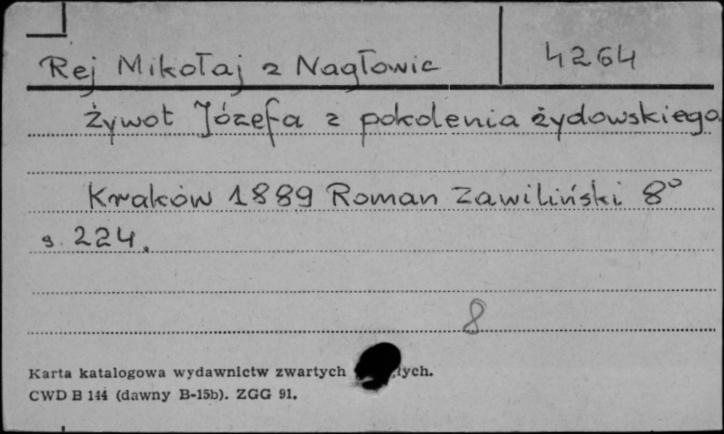 Rej Mikołaj z Nagłowic 4264
Żywot Józefa z pokolenia żydowskiego
Kraków 1889 Roman Zawiliński 8°
s. 224.
8
Karta katalogowa wydawnictw zwartych
CWD B 144 (dawny B-15b). ZGG 91.